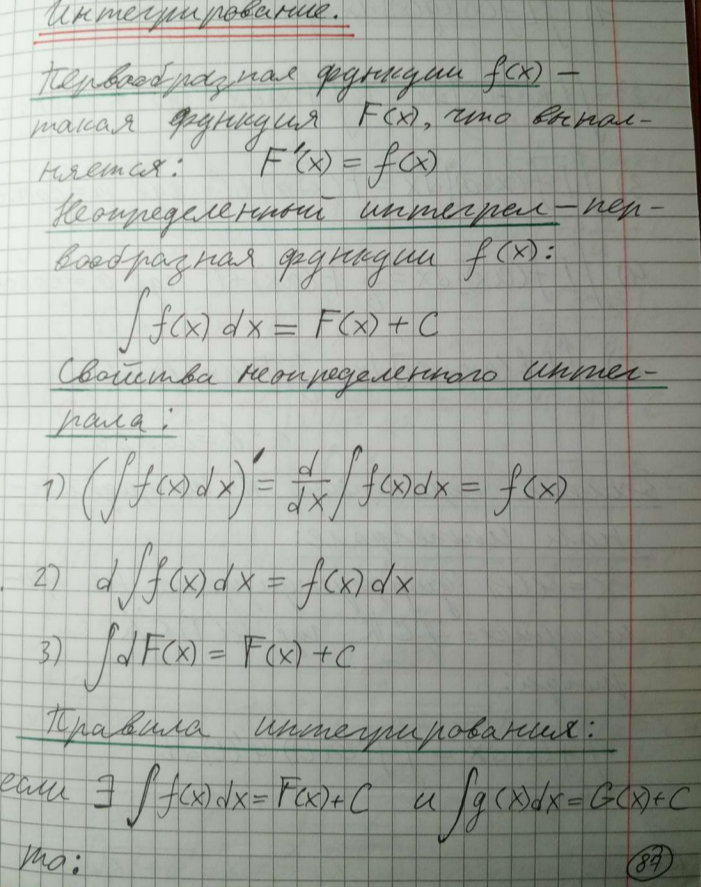 Интегрирование.
Первообразная функции f(x) –
такая функция F(x), что выпол-
няется: F'(x) = f(x)
Неопределенный интеграл – пер-
вообразная функции f(x):
∫ f(x) dx = F(x) + C
Свойства неопределенного интег-
рала:
1) (∫ f(x) dx)' = d/dx ∫ f(x) dx = f(x)
2) d ∫ f(x) dx = f(x) dx
3) ∫ dF(x) = F(x) + C
Правила интегрирования:
если ∃ ∫ f(x) dx = F(x) + C и ∫ g(x) dx = G(x) + C
то: 87